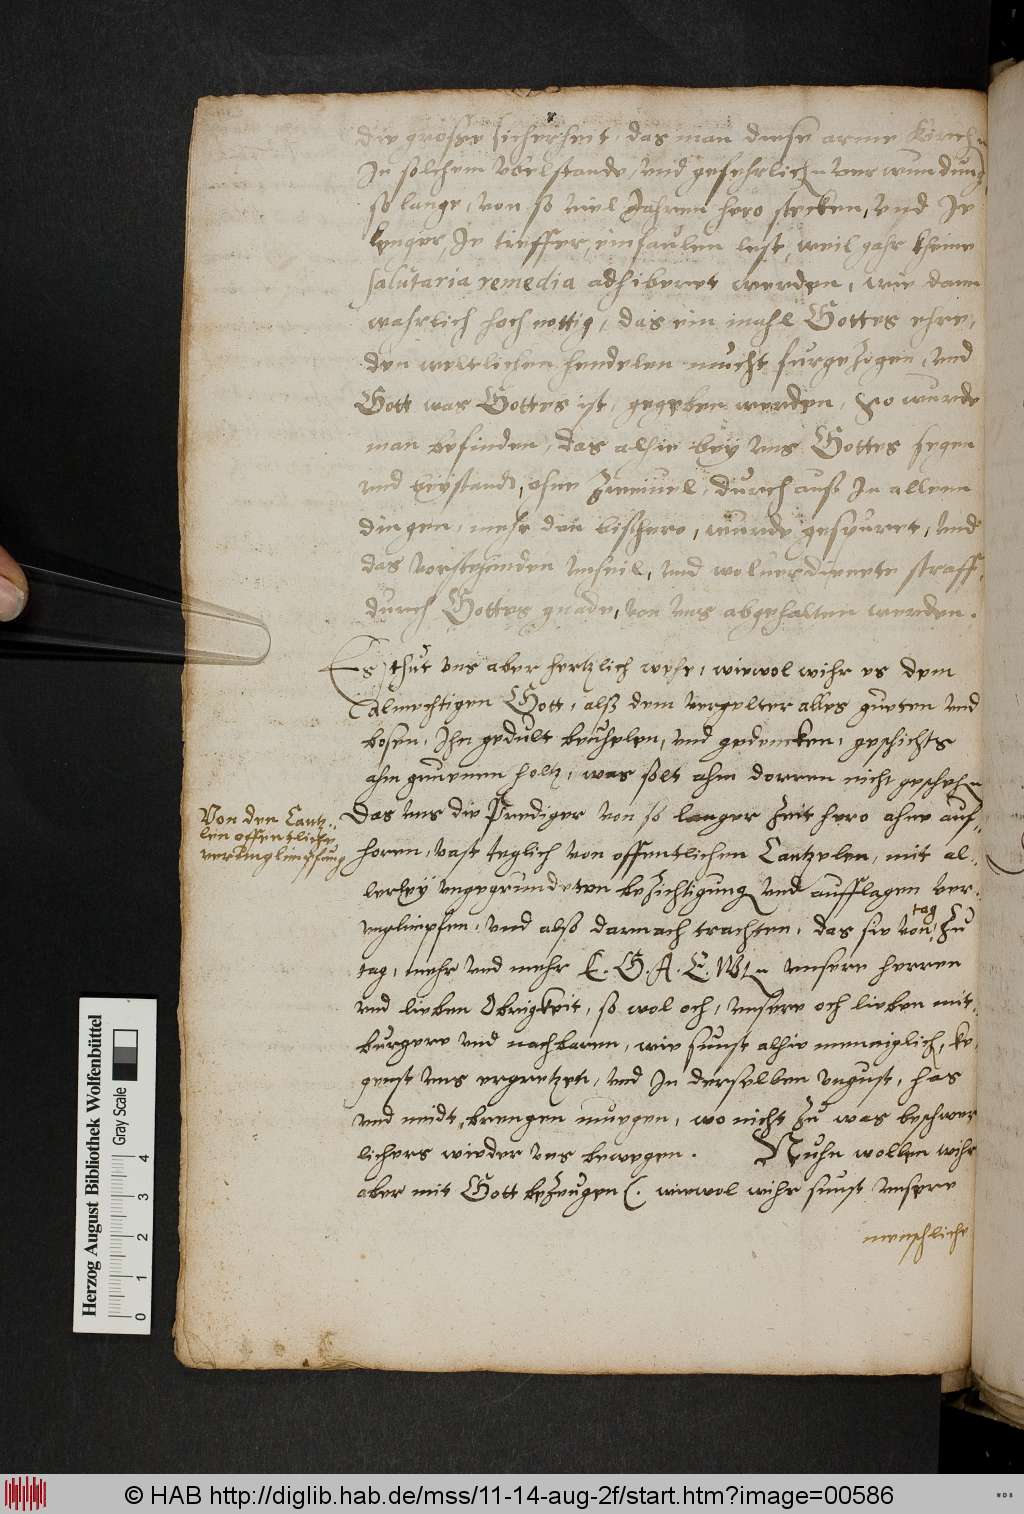 die grosse sicherheit, das man diese arme kirchen
In solchem vbelstande, vnd gefehrlichen verwundung
so lange, von so viel Jahren hero stecken, vnd Je
lenger, Je tieffer, einfaulen lest, weil gahr kheine
salutaria remedia adhiberet werden, wie dann
wahrlich hoch nottig, das ein mahl Gottes ehre,
den weltlichen hendelen nicht furgezogen, vnd
Gott was Gottes ist, gegeben werden, So wurde
man befinden, das alhie bey vns Gottes segen
vnd beystandt, ohne Zweiuel, durch auß In allem
dingen, mehr dan bißhero, wurde gespuret, vnd
das vorstehenden vnheil, vnd woluerdienete straff,
durch Gottes gnade, von vns abgehalten werden.
Es thut vns aber hertzlich wehe, wiewol wihr es dem
almechtigen Gott, alß dem vergelter alles gueten vnd
bosen, Ihn gedult beuhelen, vnd gedencken, geschichts
ahm gruenen holtz, was solt ahm dorren nicht geschehen
Von den Cantz-
len offentliche
verunglimpfung
Das vns die Prediger von so langer Zeit hero ohne auf-
horen, vast teglich von offentlichen Cantzelen, mit al-
lerley vngegrundeten beZichtigung vnd aufflagen ver-
unglimpfen, vnd alß darnach trachten, das sie von tag Zu
tag, mehr vnd mehr E. G. A. E. W. vnsere herren
vnd lieben Obrigkeit, so wol och, vnsere och lieben mit-
burgere vnd nachbaren, wie sunst alhie menniglich, ke-
genst vns vergretzen, vnd In derselben vngust, has
vnd neidt, brengen muegen, wo nicht Zu was beschwer
lichers wieder vns bewegen. Nuhn wollen wihr
aber mit Gott beZeugen (. wiewol wihr sunst vnsere
menschliche
Herzog August Bibliothek Wolfenbüttel
Gray Scale
0 1 2 3 4
© HAB http://diglib.hab.de/mss/11-14-aug-2f/start.htm?image=00586